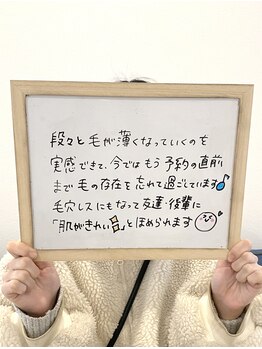 段々と毛が薄くなっていくのを
実感できて、今ではもう予約の直前
まで毛の存在を忘れて過ごしています
毛穴レスにもなって友達・後輩に
「肌がきれい」とほめられます